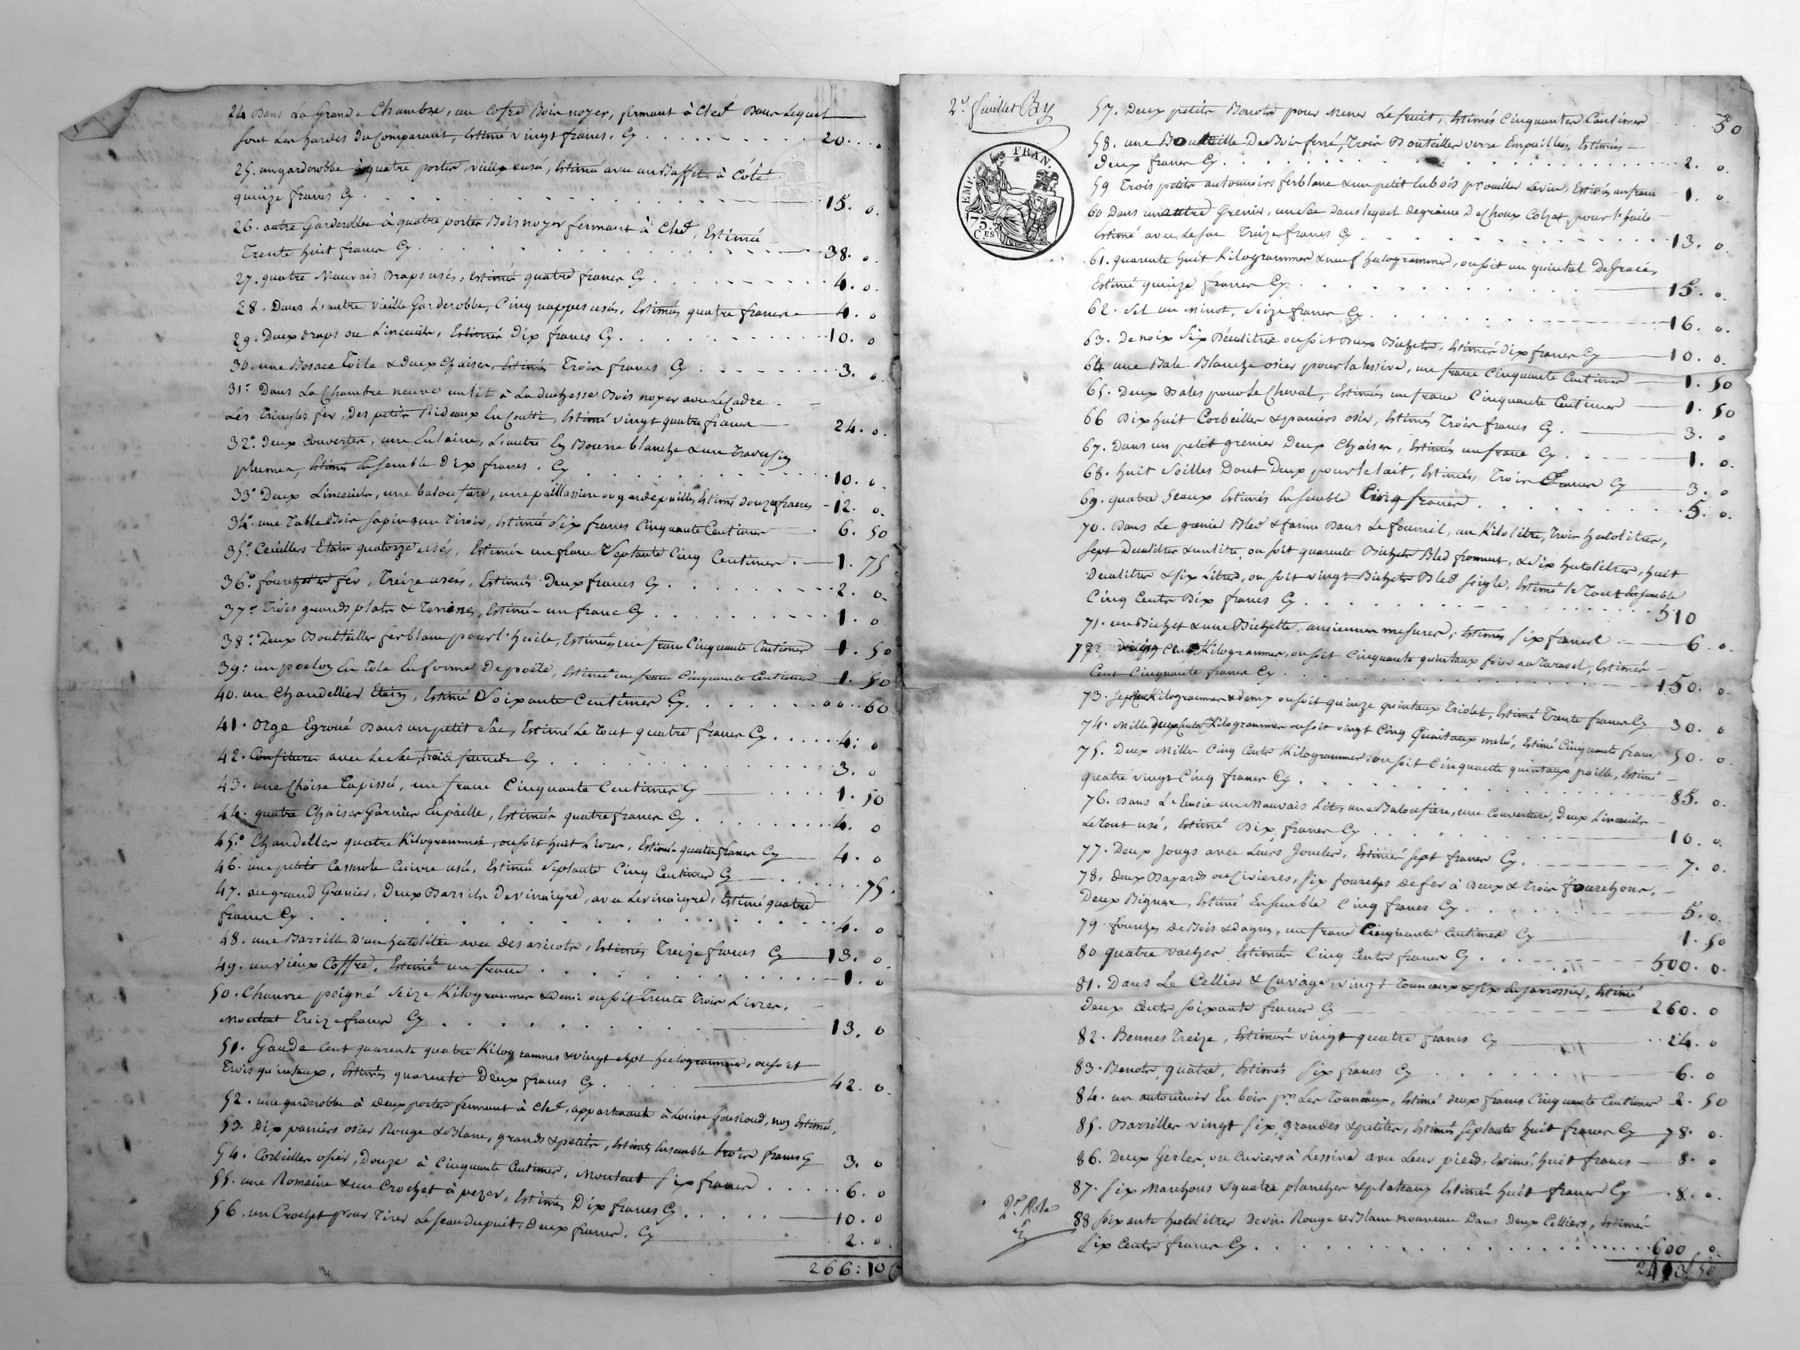 24 Dans La Grande Chambre, un Cofre Bois noyer, fermant à Clef Dans Lequel
sont Les hardes du Comparant, Estimé vingt francs, Cy . . . . 20. . .
25. un garderobbe à quatre portes, vieille & usé, Estimé avec un Buffet à Côté
quinze francs Cy . . . . 15. 0.
26. autre Garderobbe à quatre portes Bois noyer fermant à Clef, Estimé
Trente huit francs Cy . . . . 38. 0.
27. quatre Mauvais Draps usés, Estimé quatre francs Cy . . . . 4. 0.
28. Dans L'autre vieille Garderobbe, Cinq nappes usés, Estimés quatre francs 4. 0
29. Deux draps ou Linceuils, Estimés Dix francs Cy . . . . 10. 0
30. une Besace Toile & Deux Chaises, Estimés Trois francs Cy . . . . 3. 0.
31. Dans La Chambre neuve un lit à La duchesse Bois noyer avec Le Cadre
Les Tringles fer, Des petits Rideaux En Coutti, Estimé vingt quatre francs 24. 0.
32. Deux Couvertes, une En laine, L'autre En Bourre blanche & une Traversin
plumes, Estimés Ensemble Dix francs. Cy . . . . 10. 0.
33. Deux Linceuils, une baloufiere, une paillassiere ou gardepailles, Estimés douze francs 12. 0.
34. une Table Bois sapin & un Tiroir, Estimée Six francs Cinquante Centimes 6. 50
35. Cuilles Etain quatorze usés, Estimés un franc Septante Cinq Centimes . 1. 75
36. fourchettes fer, Treize usés, Estimés Deux francs Cy . . . . 2. 0.
37. Trois grands plats & Terrines, Estimés un franc Cy . . . . 1. 0
38. Deux Bouteilles ferblanc pour l'huile, Estimées un franc Cinquante Centimes 1. 50
39. un poelon En Tole En forme De poële, Estimé un franc Cinquante Centimes 1. 50
40. un Chandellier Etain, Estimé Soixante Centimes Cy . . . . 00. 60
41. Orge Egroué Dans un petit Sac, Estimé Le Tout quatre francs Cy . . . . 4: 0
42. Confiture avec Le Sac, trois francs Cy . . . . 3. 0
43. une Chaise Tapissé, un franc Cinquante Centimes Cy 1. 50
44. quatre Chaises Garnies En paille, Estimés quatre francs Cy . . . . 4. 0
45. Chandelles quatre Kilogrammes, ou soit huit Livres, Estimé quatre francs Cy 4. 0
46. une petite Casserole Cuivre usé, Estimée Septante Cinq Centimes Cy . . . . 75.
47. au grand Grenier, Deux Barrils De vinaigre, avec Le vinaigre, Estimé quatre
francs Cy . . . . 4. 0
48. une Barrille D'un hectolitre avec Des aricots, Estimés Treize francs Cy 13. 0
49. un vieux Coffre, Estimé un franc . . . . 1. 0
50. Chanvre peigné Seize Kilogrammes & Demi ou soit Trente Trois Livres,
Montent Treize francs Cy . . . . 13. 0
51. Gaude Cent quarente quatre Kilogrammes & vingt sept hectogrammes, ou soit
Trois quinteaux, Estimés quarente Deux francs Cy . . . . 42. 0.
52. une garderobbe à Deux portes fermant à Clef, appartenante à Louise , non Estimé,
53. Dix panniers osier Rouge & Blanc, grands & petits, Estimés Ensemble trois francs Cy 3. 0
54. Corbeilles osier, Douze à Cinquante Centimes, Montent Six francs . . . . 6. 0
55. une Romaine & un Crochet à pezer, Estimés Dix francs Cy . . . . 10. 0
56. un Crochet pour Tirer Le seau du puit, Deux francs, Cy 2. 0.
266:10
2e. feuillet
EMP. FRAN.
75. CES.
57. Deux petits Benots pour Mener Le fruit, Estimés Cinquante Centimes 50
58. une Bouteille De Bois ferré, Trois Bouteilles verre Empaillées, Estimés
Deux francs Cy . . . . 2. 0.
59 Trois petits antonoirs ferblanc & un petit En bois Le vin, Estimés un franc 1. 0.
60 Dans un autre Grenier, un Sac Dans Lequel De graine De Choux Colzat, pour l'huile
Estimé avec Le Sac Treize francs Cy . . . . 13. 0.
61. quarente huit Kilogrammes & neuf hectogrammes, ou soit un quintal De
Estimé quinze francs Cy . . . . 15. 0.
62. Sel un Minot, Seize francs Cy . . . . 16. 0.
63. De noix Six Décalitres ou soit Deux Bichets, Estimés dix francs Cy 10. 0.
64. une Bale Blanche osier pour la lessive, un franc Cinquante Centimes 1. 50
65. Deux Bales pour Le Cheval, Estimés un franc Cinquante Centimes 1. 50
66 Dix huit Corbeilles & paniers osier, Estimés Trois francs Cy . 3. 0
67. Dans un petit grenier Deux Chaises, Estimés un franc Cy . . 1. 0.
68. huit Seilles Dont Deux pour Le lait, Estimées, Trois francs Cy 3. 0
69. quatre Seaux Estimés Ensemble Cinq francs . . . . 5. 0.
70. Dans Le grenier Bled & farine Dans Le fournil, un Kilolitre, Trois hectolitres,
Sept Decalitres & un litre, ou soit quarente Bichets Bled froment, & Dix hectolitres, huit
Decalitres & Six Litres, ou soit vingt Bichets Bled Seigle, Estimé le Tout Ensemble
Cinq Cents Dix francs Cy . . . . 510
71. un Bichet & une Bichette, anciennes mesures, Estimés Six francs 6. 0.
72. Cents Kilogrammes, ou soit Cinquante quinteaux foin au , Estimés
Cent Cinquante francs Cy . . . . 150. 0.
73. Sept Kilogrammes & demy ou soit quinze quinteaux Triolet, Estimé Trente francs Cy 30. 0
74. Mille deux Cents Kilogrammes ou soit vingt Cinq Quinteaux melé, Estimé Cinquante francs 50. 0.
75. Deux Milles Cinq Cents Kilogrammes ou soit Cinquante quinteaux paille, Estimé
quatre vingt Cinq francs Cy . . . . 85. 0.
76. Dans L'Ecurie un Mauvais Lit, une Baloufiere, une Couverture, Deux Linceuils
Le Tout usé, Estimé Dix francs Cy . . . . 10. 0.
77. Deux Jougs avec Leurs Joucles, Estimés Sept francs Cy . 7. 0.
78. Deux Bayards ou Civieres, Six fourches De fer à Deux & Trois fourchons,
Deux Bignes, Estimé Ensemble Cinq francs Cy . . . . 5. 0.
79 fourches De Bois & , un franc Cinquante Centimes Cy 1. 50
80 quatre vaches, Estimées Cinq Cents francs Cy . . . . 500. 0.
81. Dans Le Cellier & Cuvage, vingt Tonneaux & Six , Estimé
Deux Cents Soixante francs Cy 260. 0
82. Bennes Treize, Estimées vingt quatre francs Cy 24. 0
83. Benots quatre, Estimés Six francs Cy 6. 0
84. un antonoir En bois pr. Les Tonneaux, Estimé deux francs Cinquante Centimes 2. 50
85. Barrilles vingt Six, grandes & petites, Estimés Septante huit francs Cy 78. 0.
86. Deux Gerles ou Cuviers à Lessive avec Leurs pieds, Estimés huit francs 8. 0
87. Six Marchons & quatre planches & plateaux Estimés huit francs Cy 8. 0.
2e. Role
88 Soixante hectolitres De vin Rouge & Blanc nouveau Dans Deux Celliers, Estimés
Six Cents francs Cy . . . . 600 0.